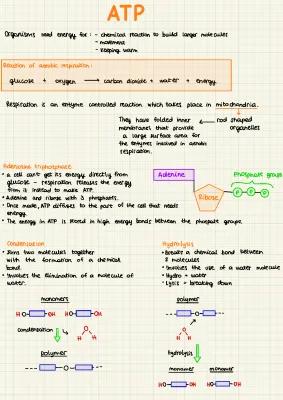 ATP
Organisms need energy for: - chemical reaction to build larger molecules
- movement
- keeping warm
Reaction of aerobic respiration:
glucose + oxygen → carbon dioxide + water + energy
Respiration is an enzyme controlled reaction which takes place in mitochondria.
They have folded inner ← rod shaped
membranes that provide organelles
a large surface area for
the enzymes involved in aerobic
respiration.
Adenosine triphosphate
• a cell can't get its energy directly from
glucose - respiration releases the energy
from it instead to make ATP.
• Adenine and ribose with 3 phosphates.
• Once made, ATP diffuses to the part of the cell that needs
energy.
• The energy in ATP is stored in high energy bonds between the phosphate groups.
Adenine
Phosphate groups
Ribose
P P P
Condensation
• Joins two molecules together
with the formation of a chemical
bond.
• Involves the elimination of a molecule of
water.
monomers
HO OH HO OH
condensation
H O H
polymer
O
Hydrolysis
• Breaks a chemical bond between
2 molecules
• Involves the use of a water molecule
• Hydro = water
• Lysis = breaking down
polymer
O
H O H
Hydrolysis
monomer monomer
HO OH HO OH